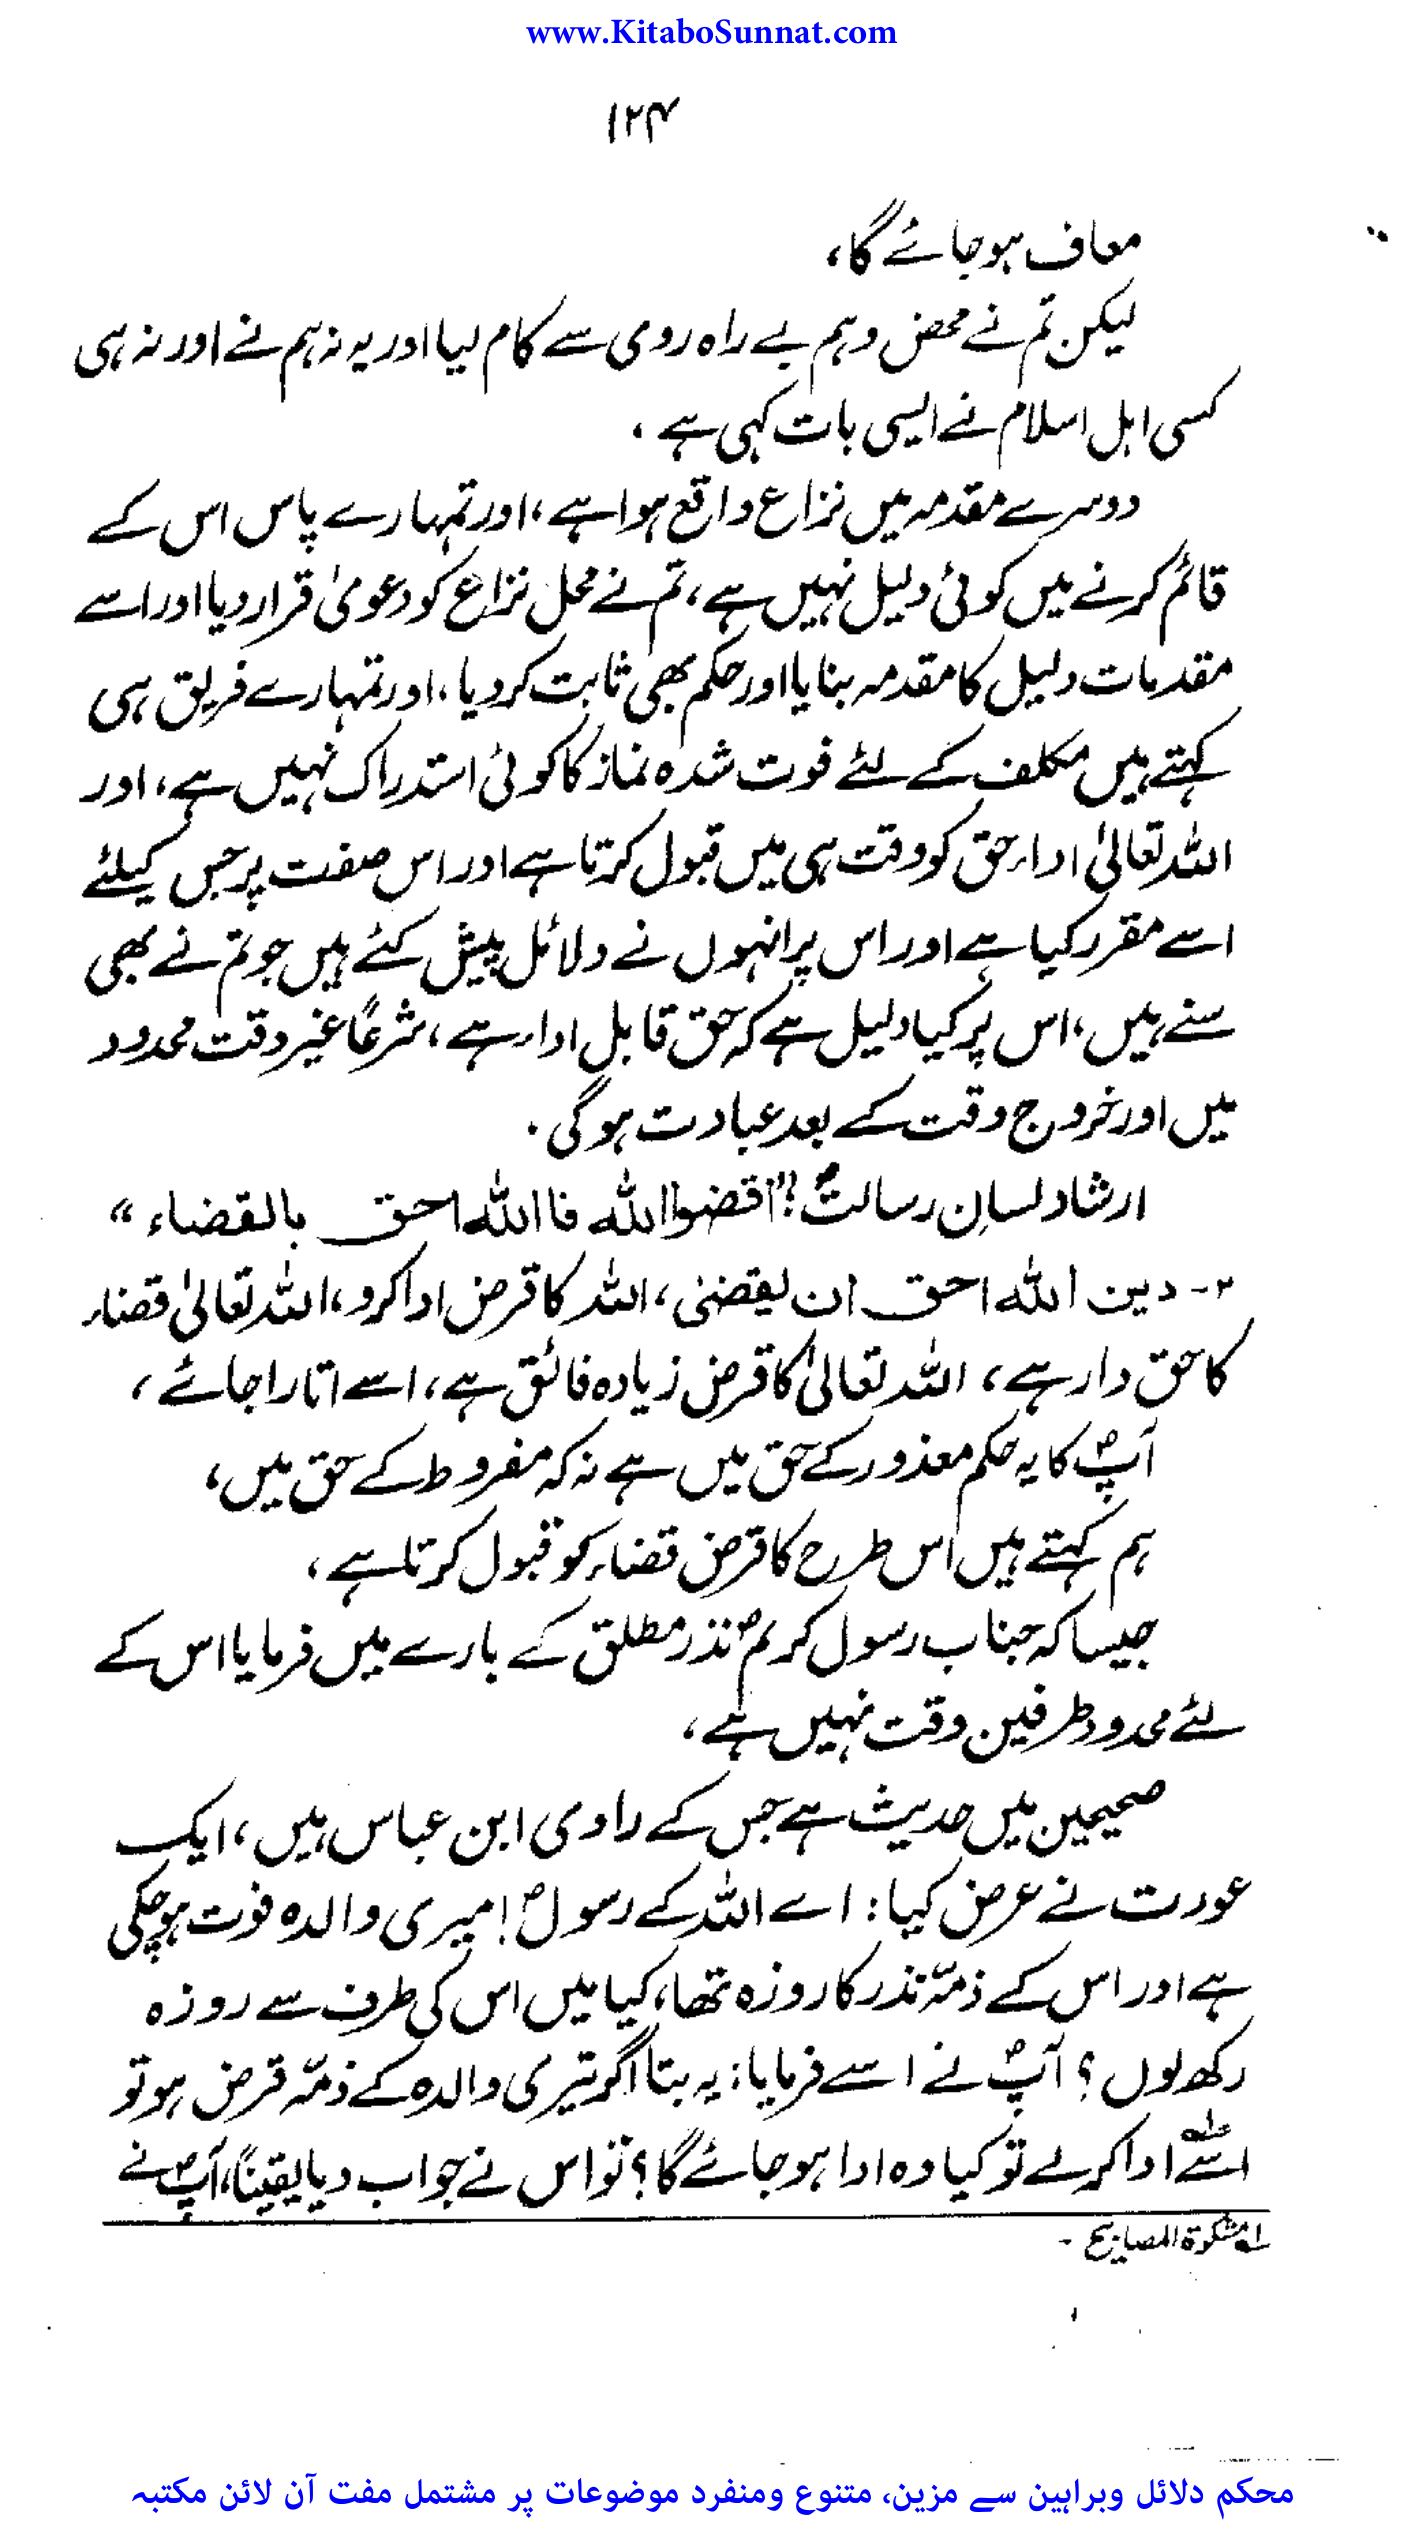 www.KitaboSunnat.com
۱۲۴
معاف ہوجائے گا،
لیکن تم نے محض وہم بے راہ روی سے کام لیا اور یہ نہ ہم نے اور نہ ہی
کسی اہل اسلام نے ایسی بات کہی ہے ،
دوسرے مقدمہ میں نزاع واقع ہوا ہے، اور تمہارے پاس اس کے
قائم کرنے میں کوئی دلیل نہیں ہے، تم نے محل نزاع کو دعویٰ قرار دیا اور اسے
مقدمات دلیل کا مقدمہ بنایا اور حکم بھی ثابت کر دیا ، اور تمہارے فریق ہی
کہتے ہیں مکلف کے لئے فوت شدہ نماز کا کوئی استدراک نہیں ہے، اور
اللہ تعالیٰ اداء حق کو وقت ہی میں قبول کرتا ہے اور اس صفت پر جس کیلئے
اسے مقرر کیا ہے اور اس پر انہوں نے دلائل پیش کئے ہیں جو تم نے بھی
سنے ہیں، اس پر کیا دلیل ہے کہ حق قابل اداء ہے، شرعًا غیر وقت محدود
میں اور خروج وقت کے بعد عبادت ہوگی ۔
ارشاد لسان رسالتؐ: "اقضوا اللہ فا اللہ احق بالقضاء "
۲- دین اللہ احق ان یقضیٰ ، اللہ کا قرض ادا کرو ، اللہ تعالیٰ قضاء
کا حق دار ہے ، اللہ تعالیٰ کا قرض زیادہ فائق ہے، اسے اتارا جائے ،
آپؐ کا یہ حکم معذور کے حق میں ہے نہ کہ مفروط کے حق میں،
ہم کہتے ہیں اس طرح کا قرض قضاء کو قبول کرتا ہے ،
جیسا کہ جناب رسول کریمؐ نذر مطلق کے بارے میں فرمایا اس کے
لئے محدود طرفین وقت نہیں ہے ،
صحیحین میں حدیث ہے جس کے راوی ابن عباس ہیں ، ایک
عورت نے عرض کیا : اے اللہ کے رسولؐ! میری والدہ فوت ہوچکی
ہے اور اس کے ذمّہ نذر کا روزہ تھا، کیا میں اس کی طرف سے روزہ
رکھ لوں ؟ آپؐ نے اسے فرمایا: یہ بتا اگر تیری والدہ کے ذمّہ قرض ہو تو
اسے لہ ادا کرلے تو کیا وہ ادا ہوجائے گا؟ تو اس نے جواب دیا یقینًا، آپؐ نے
لہ مشکوۃ المصابیح ۔
محکم دلائل وبراہین سے مزین، متنوع ومنفرد موضوعات پر مشتمل مفت آن لائن مکتبہ